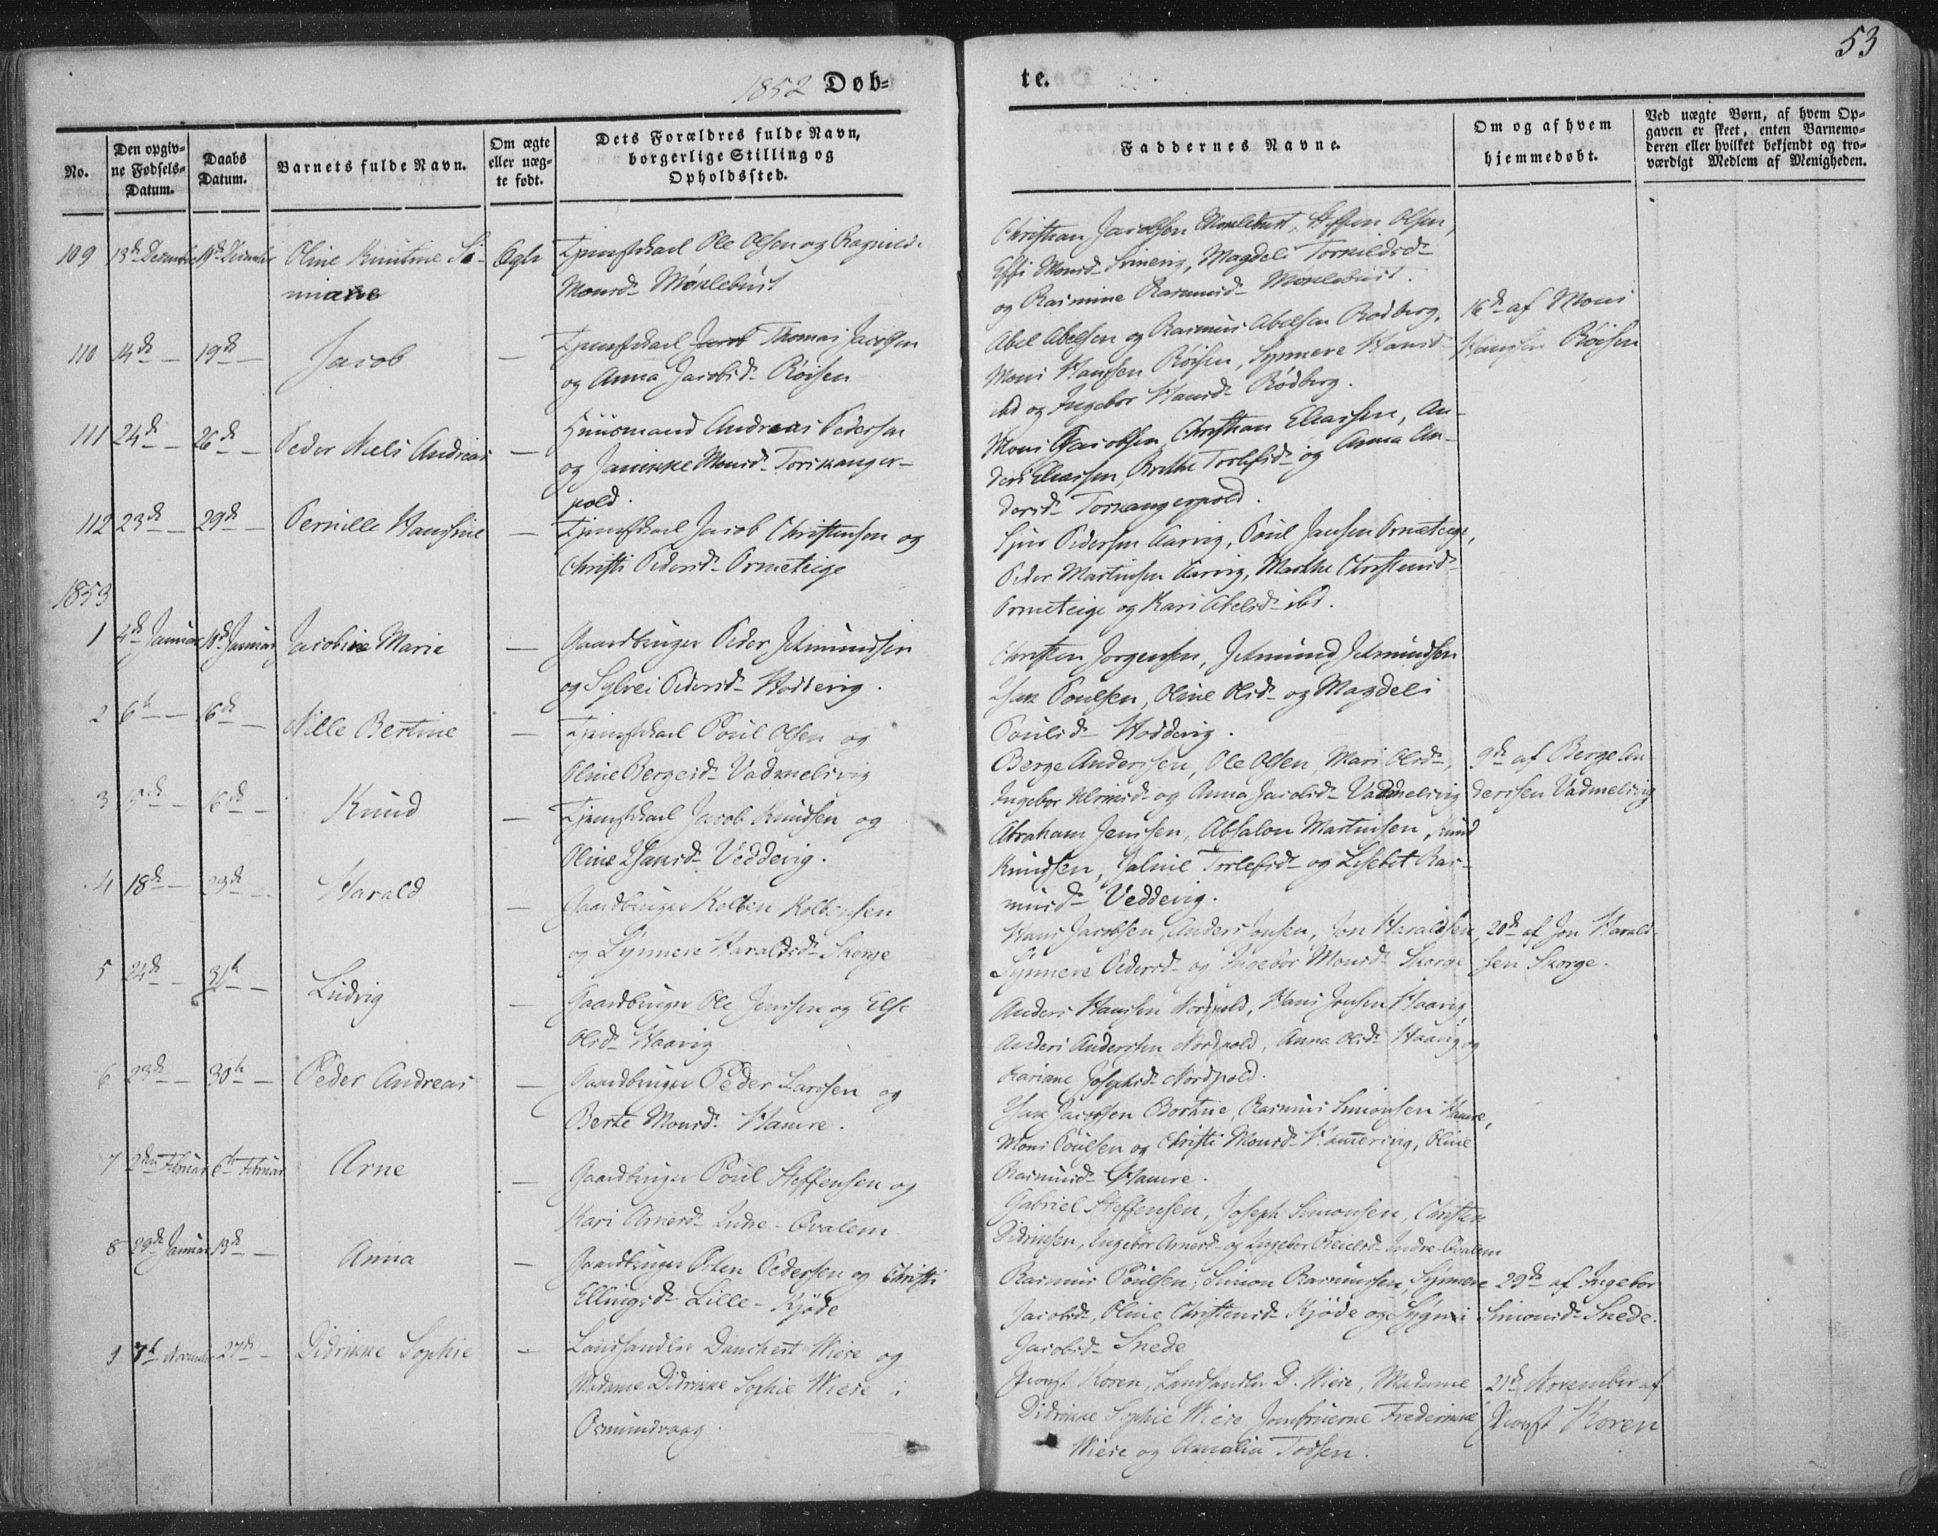 53
1852 Døb-
te.
No.
Den opgiv-
ne Fødsels-
Datum.
Daabs
Datum.
Barnets fulde Navn.
Om ægte
eller uæg-
te født.
Dets Forældres fulde Navn,
borgerlige Stilling og
Opholdssted.
Faddernes Navne.
Om og af hvem
hjemmedøbt.
Ved uægte Børn, af hvem Op-
gaven er skeet, enten Barnemo-
deren eller hvilket bekjendt og tro-
værdigt Medlem af Menigheden.
109 13de Decembre 19de December Oline Ægte Tjenestkarl Ole Olsen og Ragnild
Monsd. Mønlebust
Christian Jacobsen Mønlebust, Steffen Olsen,
Monsd. Magdeli
og Rasmine Rasmusd. Mønlebust.
110 14de — 19de — Jacob — Tjenestkarl Thomas Jacobsen
og Anna Jacobsd. Röisen
Abel Abelsen og Rasmus Abelsen Rødberg,
Mons Hansen Röisen, Synneve Hansd.
ibd og Ingebor Hansd. Rødberg.
16de af Mons
Hansen Röisen
111 24de — 26de — Peder Niels Andreas — Huusmand Andreas Pedersen
og Janikke Monsd. Torskanger-
pold.
Mons Jacobsen, Christian Eliassen, An-
ders Eliassen, Brithe og Anna An-
dersd. Torskangerpold.
112 23de — 29de — Pernille Hansine — Tjenestkarl Jacob Christensen og
Christi Pedersd. Ormeteige
Sjur Pedersen Aarvig, Poul Jensen Ormeteige,
Peder Martinsen Aarvig, Marthe Christensd.
Ormeteige og Kari Abelsd. ibd.
1853
1 4de Januar Januar Jacobine Marie — Gaardbruger Peder Jetmundsen
og Sylvei Pedersd. Hoddevig.
Christen Jørgensen, Jetmund Jetmundsen
Isak Poulsen, Oline Olsd. og Magdeli
Poulsd. Hoddevig.
2 6te — 16de — Nille Bertine — Tjenestkarl Poul Olsen og
Oline Bergesd. Vadmelsvig
Berge Anderssen, Ole Olsen, Mari Olsd.,
Ingebor og Anna Jacobsd. Vadmelsvig
9de af Berge An-
derssen Vadmelsvig
3 — 16de — Knud — Tjenestkarl Jacob Knudsen og
Oline Isansd. Veddevig.
Abraham Jenssen, Absalon Martinsen, Knud
Knudsen, og Lisebet Ras-
musd. Veddevig.
4 18de — 23de — Harald — Gaardbruger Kolben Kolbensen
og Synneve Haraldsd. Skorge
Hans Jacobsen, Anders Jonsen, Jon Haraldsen,
Synneve Pedersd. og Ingebor Monsd. Skorge
20de af Jon Harald-
sen Skorge.
5 24de — 30te — Ludvig — Gaardbruger Ole Jenssen og Else
Olsd. Haavig
Anders Hanssen Nordpold, Hans Jensen Haavig,
Anders Anderssen Nordpold, Anna Olsd. Haavig og
Kariane Josephsd. Nordpold.
6 23de — 30te — Peder Andreas — Gaardbruger Peder Larssen og
Berte Monsd. Hamre.
Isak Jacobsen Bortne, Rasmus Simonsen Hamre,
Mons Poulsen og Christi Monsd. Oline
Rasmusd. Hamre.
7 2den Februar 6te Februar Arne — Gaardbruger Poul Steffensen og
Kari Arnesd. Indre-Qvalem
Gabriel Steffensen, Joseph Simonsen, Christen
Didrinsen, Ingebor Arnesd. og Ingebor Indre-Qvalem
8 29de Januar 13de — Anna — Gaardbruger Peder Pedersen og Christi
Ellingsd. Lille-Kjøde
Rasmus Poulsen, Simon Rasmussen, Synneve
Jacobsd., Oline Christensd. Kjøde og Sygni
Jacobsd. Snede
29de af Ingebor
Simonsd. Snede.
9 7de November 27de — Didrikke Sophie — Landhandler Danchert Wiese og
Madame Didrikke Sophie Wiese i
Osmundvaag.
Provst Koren, Landhandler D. Wiese, Madame
Didrikke Sophie Wiese, Jomfruerne Frederikke
Wiese og Amalia Todsen.
21de November af
Provst Koren